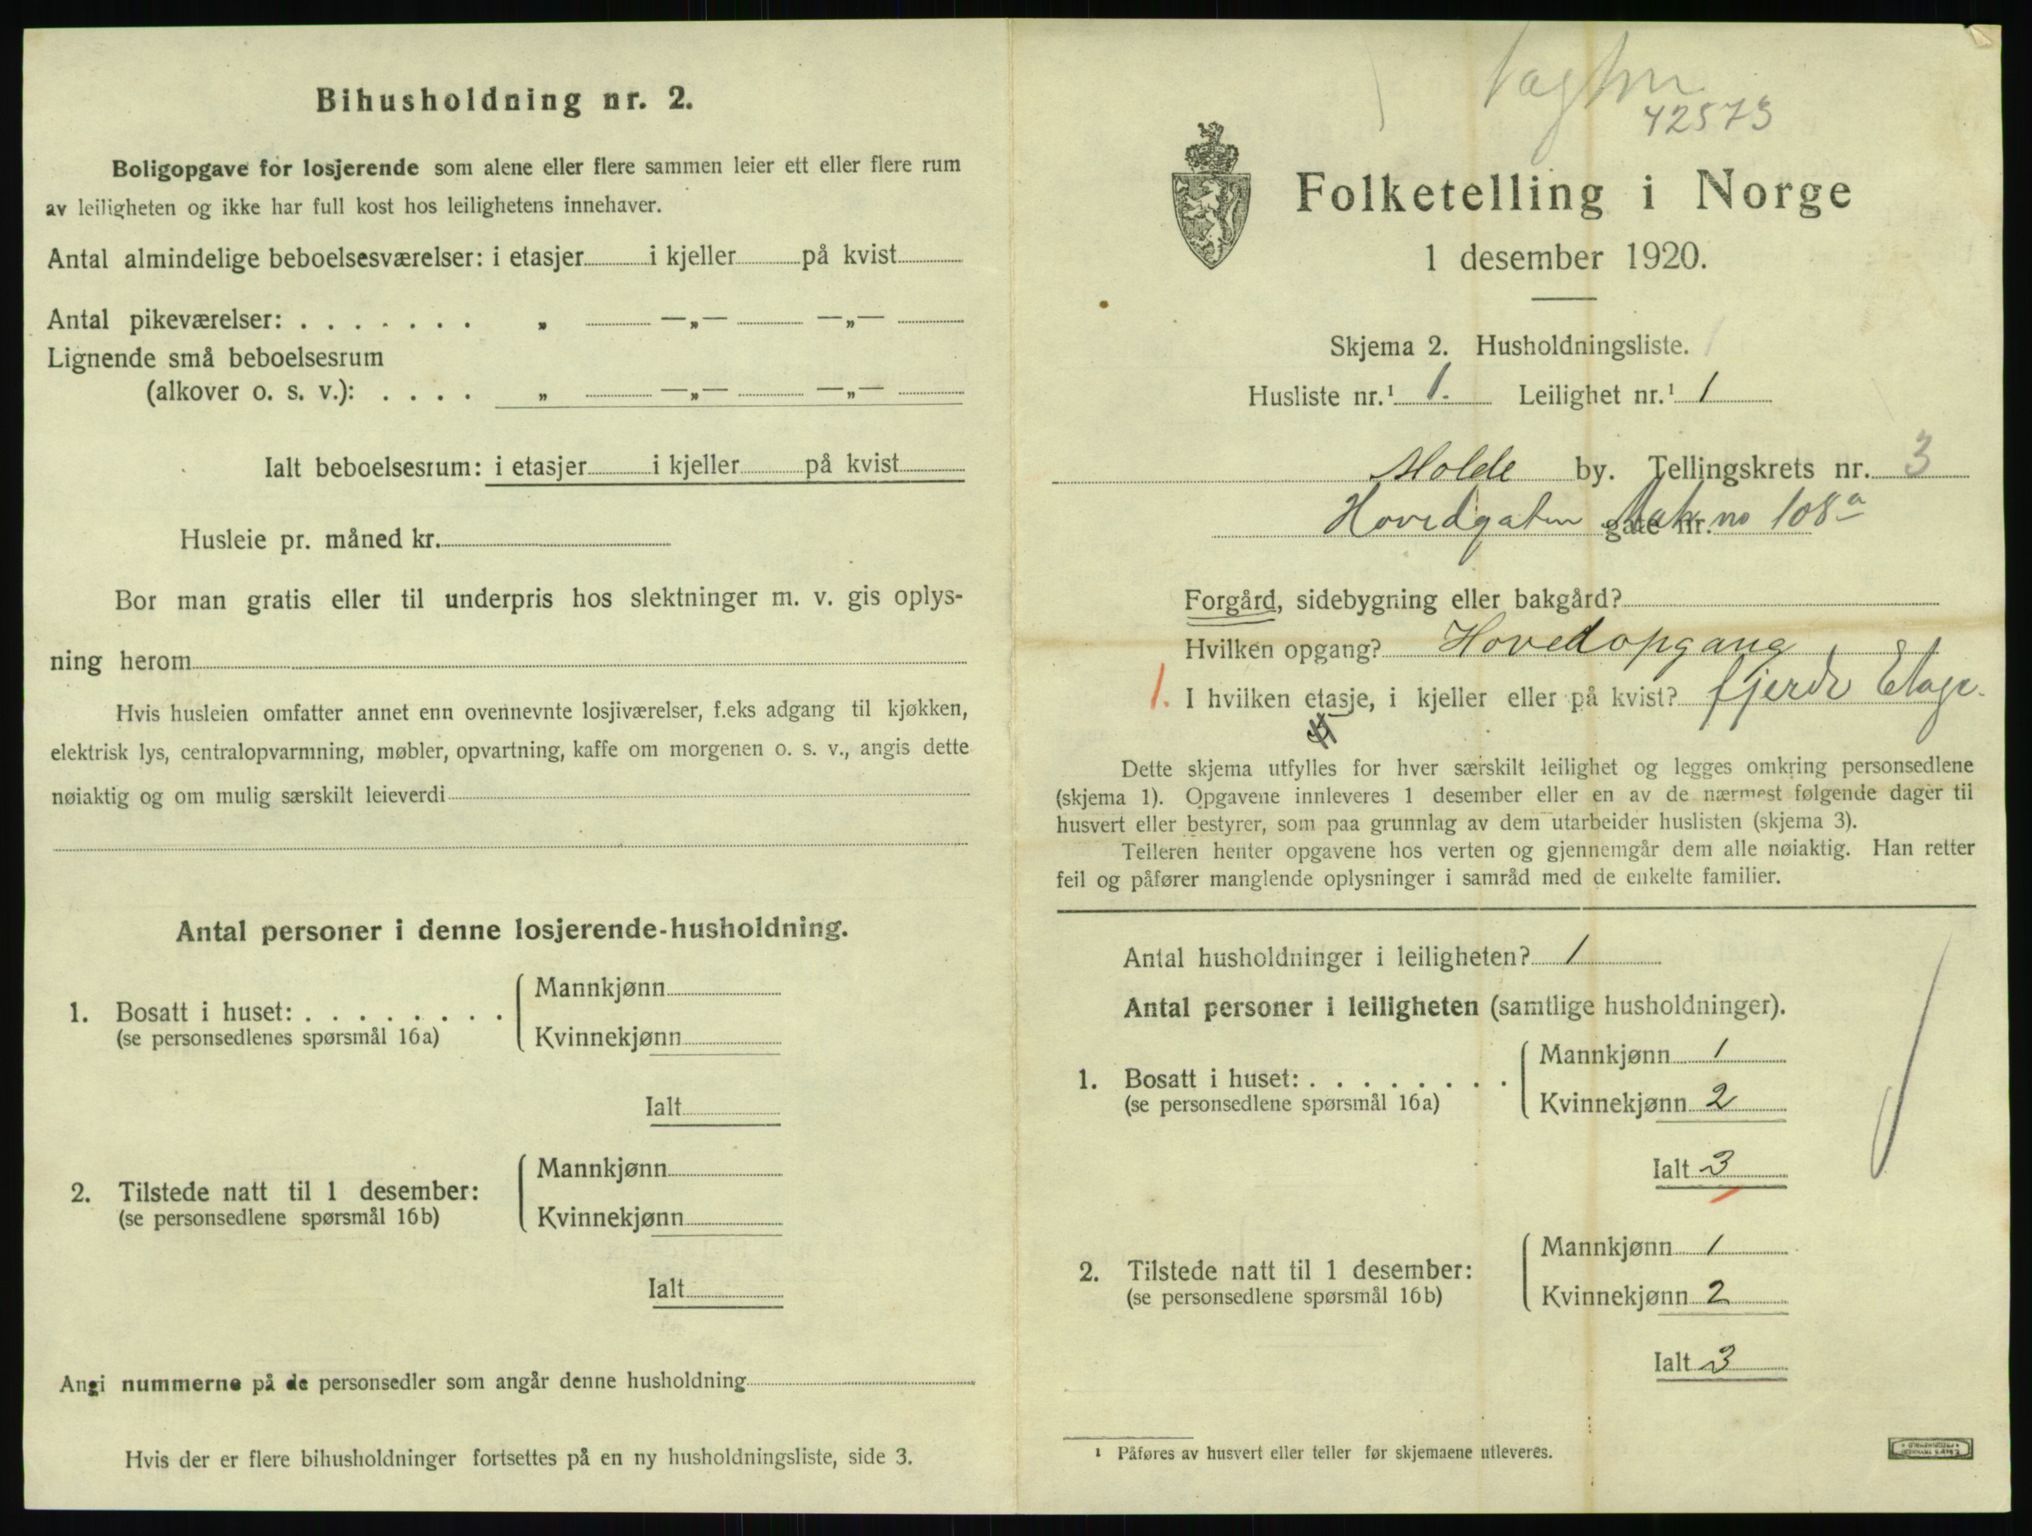 Bihusholdning nr. 2.
Boligopgave for losjerende som alene eller flere sammen leier ett eller flere rum
av leiligheten og ikke har full kost hos leilighetens innehaver.
Antal almindelige beboelsesværelser: i etasjer i kjeller på kvist
Antal pikeværelser: . . . . . . . „ —„— —„—
Lignende små beboelsesrum
(alkover o. s. v.): . . . . „ —„— —„—
Ialt beboelsesrum: i etasjer i kjeller på kvist
Husleie pr. måned kr.
Bor man gratis eller til underpris hos slektninger m. v. gis oplys-
ning herom
Hvis husleien omfatter annet enn ovennevnte losjiværelser, f.eks adgang til kjøkken,
elektrisk lys, centralopvarmning, møbler, opvartning, kaffe om morgenen o. s. v., angis dette
nøiaktig og om mulig særskilt leieverdi
Antal personer i denne losjerende-husholdning.
1. Bosatt i huset: . . . . . . . .
(se personsedlenes spørsmål 16a)
Mannkjønn
Kvinnekjønn
Ialt
2. Tilstede natt til 1 desember:
(se personsedlene spørsmål 16b)
Mannkjønn
Kvinnekjønn
Ialt
Angi nummerne på de personsedler som angår denne husholdning
Hvis der er flere bihusholdninger fortsettes på en ny husholdningsliste, side 3.
42573
Folketelling i Norge
1 desember 1920.
Skjema 2. Husholdningsliste. 1
Husliste nr.¹ 1. Leilighet nr.¹ 1
Molde by. Tellingskrets nr. 3
Hovedgaten gate nr. Mak no 108a
Forgård, sidebygning eller bakgård?
Hvilken opgang? Hovedopgang
1. I hvilken etasje, i kjeller eller på kvist? fjerde Etage.
Dette skjema utfylles for hver særskilt leilighet og legges omkring personsedlene
(skjema 1). Opgavene innleveres 1 desember eller en av de nærmest følgende dager til
husvert eller bestyrer, som paa grunnlag av dem utarbeider huslisten (skjema 3).
Telleren henter opgavene hos verten og gjennemgår dem alle nøiaktig. Han retter
feil og påfører manglende oplysninger i samråd med de enkelte familier.
Antal husholdninger i leiligheten? 1
Antal personer i leiligheten (samtlige husholdninger).
1. Bosatt i huset: . . . . . . . .
(se personsedlene spørsmål 16a)
Mannkjønn 1
Kvinnekjønn 2
Ialt 3
2. Tilstede natt til 1 desember:
(se personsedlene spørsmål 16b)
Mannkjønn 1
Kvinnekjønn 2
Ialt 3
¹ Påføres av husvert eller teller før skjemaene utleveres.